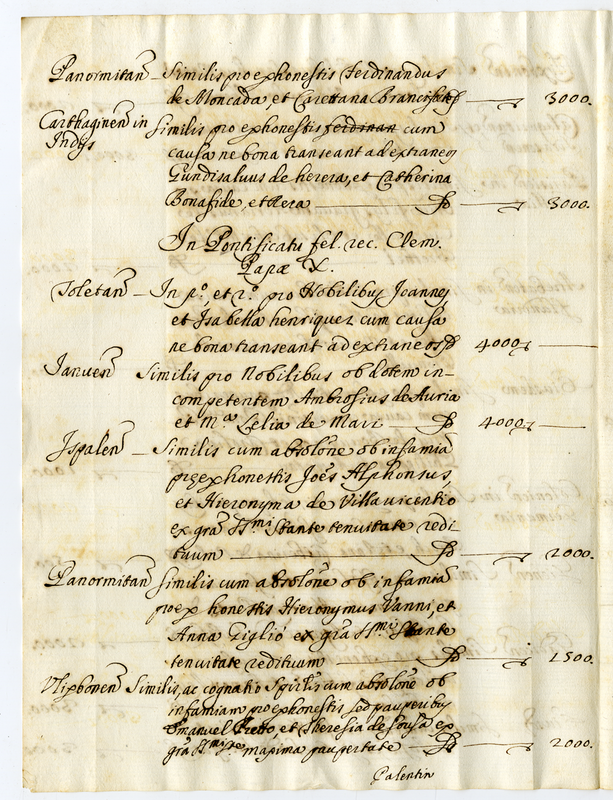 Panormitan̄ — Similis pro ex honestis Ferdinandus
de Moncada, et Caiettana Branciforte — 3000.
Carthaginen̄ in Similis pro ex honestis ferdinan cum
Indijs causa ne bona transeant ad extraneos
Gundisaluus de herera, et Catherina
Bonafide, et Rera — 3000.
In Pontificatu fel. rec. Clem.
Papæ X.
Toletan̄ — In p.º et 2.º pro Nobilibus Joannes
et Isabella henriquez cum causa
ne bona transeant ad extraneos 4000 —
Januen̄ Similis pro Nobilibus ob dotem in-
competentem Ambrosius de Auria
et M.ª Lelia de Mari — 4000 —
Ispalen̄ — Similis cum absolōne ob infamiā
pro ex honestis Joēs Alphonsus,
et Hieronyma de Villavicentio
ex grā S.mi Stante tenuitate redi
tuum — 2000.
Panormitan̄ Similis cum absolōne ob infamiā
pro ex honestis Hieronymus Vanni, et
Anna Giglio ex grā S.mi Stante
tenuitate redituum — 1500.
Vlixbonen̄ Similis, ac cognatio Spirīlis cum absolōne ob
infamiam pro ex honestis sed pauperibus
Emanuel Pretto, et Theresia de Sousa ex
grā S.mi pro maxima paupertate — 2000.
Valentin̄